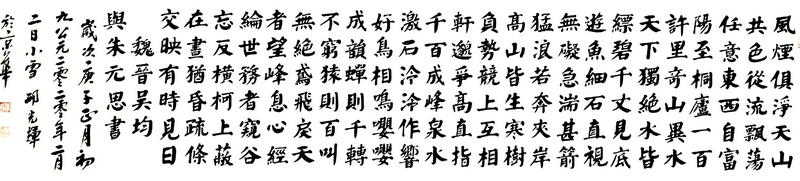 風煙俱淨天山
共色從流飄蕩
任意東西自富
陽至桐廬一百
許里奇山異水
天下獨絕水皆
縹碧千丈見底
遊魚細石直視
無礙急湍甚箭
猛浪若奔夾岸
高山皆生寒樹
負勢競上互相
軒邈爭高直指
千百成峰泉水
激石泠泠作響
好鳥相鳴嚶嚶
成韻蟬則千轉
不窮猿則百叫
無絕鳶飛戾天
者望峰息心經
綸世務者窺谷
忘反橫柯上蔽
在晝猶昏疏條
交映有時見日
魏晉吳均
與朱元思書
歲次庚子正月初
九公元二零二零年二月
二日小雪
於京華